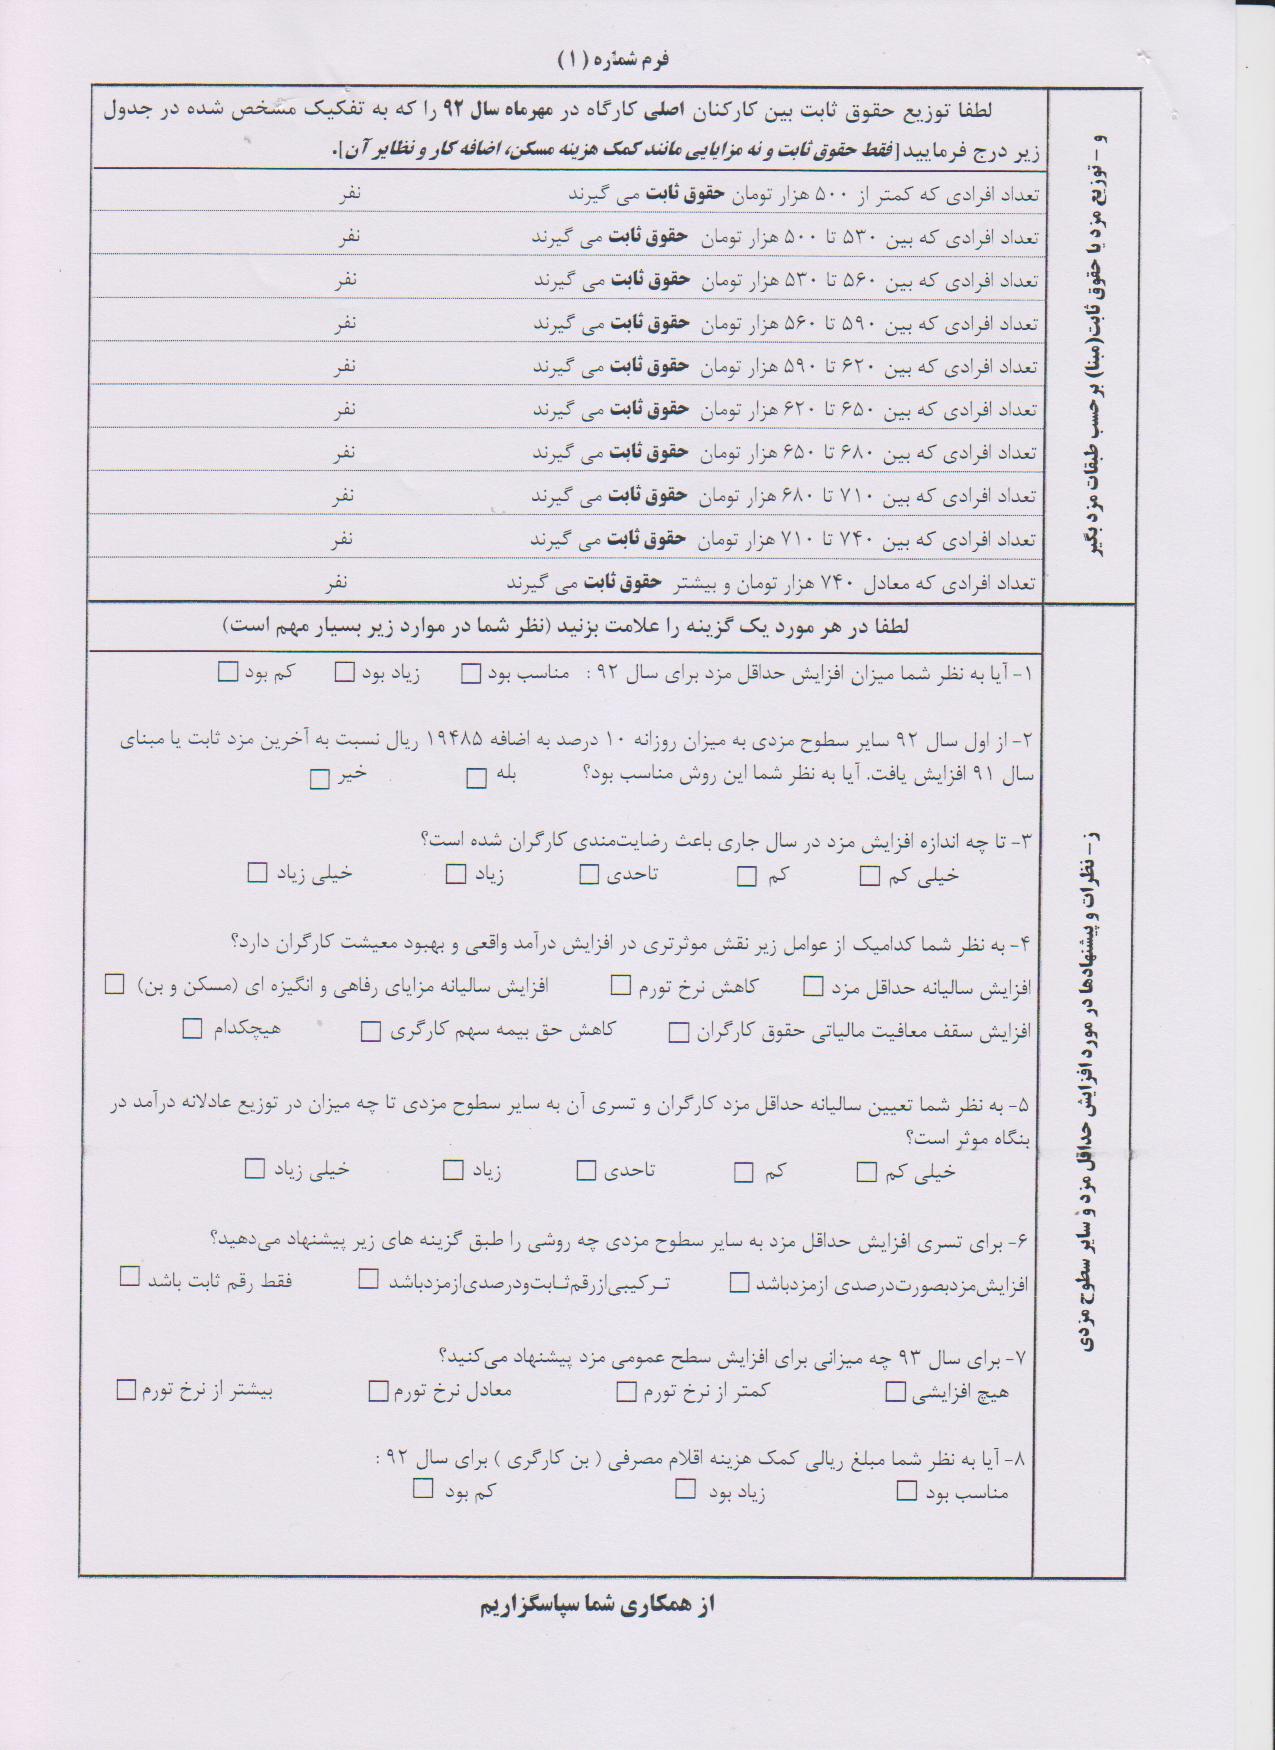 فرم شماره ( ۱ )
و - توزیع مزد یا حقوق ثابت(مبنا) بر حسب طبقات مزد بگیر
لطفا توزیع حقوق ثابت بین کارکنان اصلی کارگاه در مهرماه سال ۹۲ را که به تفکیک مشخص شده در جدول
زیر درج فرمایید[فقط حقوق ثابت و نه مزایایی مانند کمک هزینه مسکن، اضافه کار و نظایر آن].
تعداد افرادی که کمتر از ۵۰۰ هزار تومان حقوق ثابت می گیرند نفر
تعداد افرادی که بین ۵۳۰ تا ۵۰۰ هزار تومان حقوق ثابت می گیرند نفر
تعداد افرادی که بین ۵۶۰ تا ۵۳۰ هزار تومان حقوق ثابت می گیرند نفر
تعداد افرادی که بین ۵۹۰ تا ۵۶۰ هزار تومان حقوق ثابت می گیرند نفر
تعداد افرادی که بین ۶۲۰ تا ۵۹۰ هزار تومان حقوق ثابت می گیرند نفر
تعداد افرادی که بین ۶۵۰ تا ۶۲۰ هزار تومان حقوق ثابت می گیرند نفر
تعداد افرادی که بین ۶۸۰ تا ۶۵۰ هزار تومان حقوق ثابت می گیرند نفر
تعداد افرادی که بین ۷۱۰ تا ۶۸۰ هزار تومان حقوق ثابت می گیرند نفر
تعداد افرادی که بین ۷۴۰ تا ۷۱۰ هزار تومان حقوق ثابت می گیرند نفر
تعداد افرادی که معادل ۷۴۰ هزار تومان و بیشتر حقوق ثابت می گیرند نفر
ز - نظرات و پیشنهادها در مورد افزایش حداقل مزد و سایر سطوح مزدی
لطفا در هر مورد یک گزینه را علامت بزنید (نظر شما در موارد زیر بسیار مهم است)
۱- آیا به نظر شما میزان افزایش حداقل مزد برای سال ۹۲ : مناسب بود □ زیاد بود □ کم بود □
۲- از اول سال ۹۲ سایر سطوح مزدی به میزان روزانه ۱۰ درصد به اضافه ۱۹۴۸۵ ریال نسبت به آخرین مزد ثابت یا مبنای
سال ۹۱ افزایش یافت. آیا به نظر شما این روش مناسب بود؟ بله □ خیر □
۳- تا چه اندازه افزایش مزد در سال جاری باعث رضایت‌مندی کارگران شده است؟
خیلی کم □ کم □ تاحدی □ زیاد □ خیلی زیاد □
۴- به نظر شما کدامیک از عوامل زیر نقش موثرتری در افزایش درآمد واقعی و بهبود معیشت کارگران دارد؟
افزایش سالیانه حداقل مزد □ کاهش نرخ تورم □ افزایش سالیانه مزایای رفاهی و انگیزه ای (مسکن و بن) □
افزایش سقف معافیت مالیاتی حقوق کارگران □ کاهش حق بیمه سهم کارگری □ هیچکدام □
۵- به نظر شما تعیین سالیانه حداقل مزد کارگران و تسری آن به سایر سطوح مزدی تا چه میزان در توزیع عادلانه درآمد در
بنگاه موثر است؟
خیلی کم □ کم □ تاحدی □ زیاد □ خیلی زیاد □
۶- برای تسری افزایش حداقل مزد به سایر سطوح مزدی چه روشی را طبق گزینه های زیر پیشنهاد می‌دهید؟
افزایش‌مزدبصورت‌درصدی ازمزدباشد □ ترکیبی‌ازرقم‌ثابت‌ودرصدی‌ازمزدباشد □ فقط رقم ثابت باشد □
۷- برای سال ۹۳ چه میزانی برای افزایش سطح عمومی مزد پیشنهاد می‌کنید؟
هیچ افزایشی □ کمتر از نرخ تورم □ معادل نرخ تورم □ بیشتر از نرخ تورم □
۸- آیا به نظر شما مبلغ ریالی کمک هزینه اقلام مصرفی ( بن کارگری ) برای سال ۹۲ :
مناسب بود □ زیاد بود □ کم بود □
از همکاری شما سپاسگزاریم